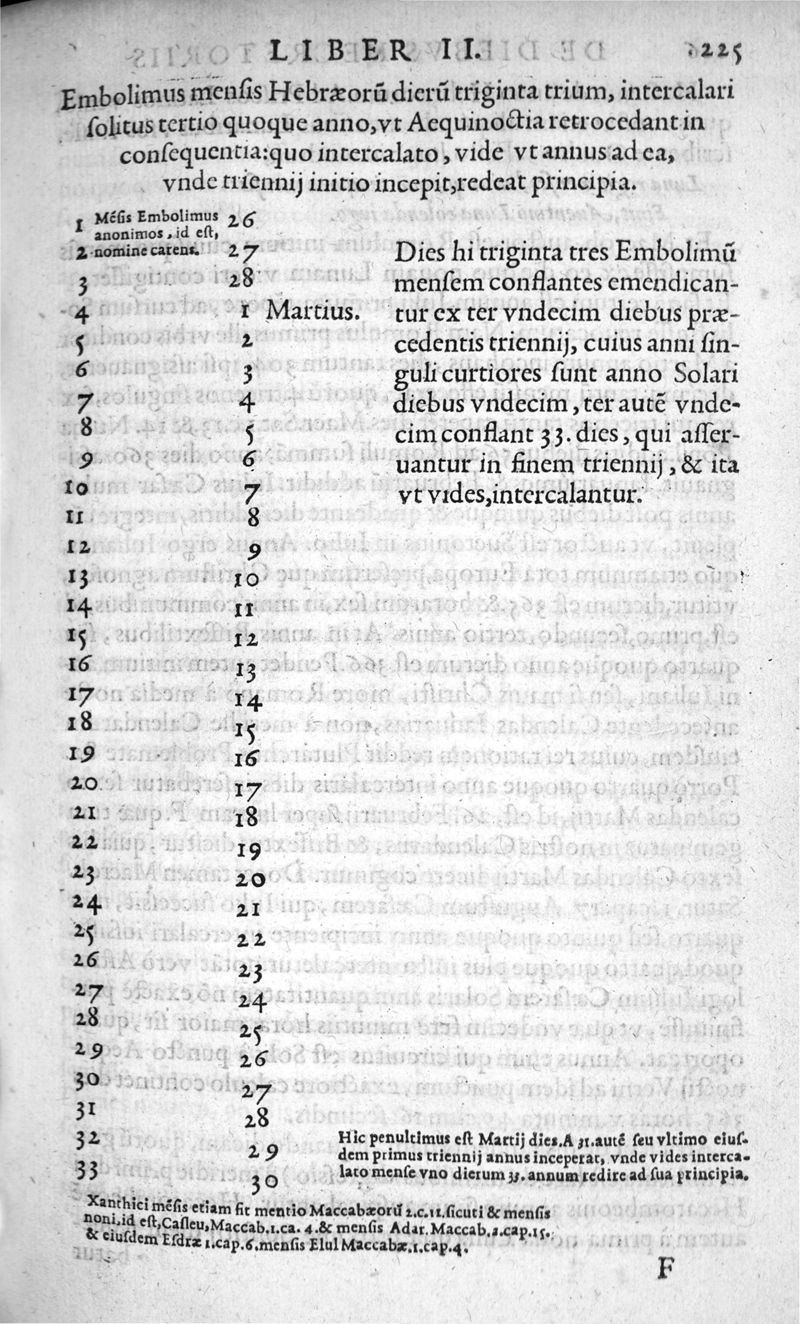 LIBER II. 225
Embolimus menſis Hebræorũ dierũ triginta trium, intercalari
ſolitus tertio quoque anno, vt Aequinoctia retrocedant in
conſequentia: quo intercalato, vide vt annus ad ea,
vnde triennij initio incepit, redeat principia.
1 Mẽſis Embolimus 26
anonimos, id eſt,
2 nomine carens. 27
3 28
4 1 Martius.
5 2
6 3
7 4
8 5
9 6
10 7
11 8
12 9
13 10
14 11
15 12
16 13
17 14
18 15
19 16
20 17
21 18
22 19
23 20
24 21
25 22
26 23
27 24
28 25
29 26
30 27
31 28
32 29
33 30
Dies hi triginta tres Embolimũ
menſem conflantes emendican-
tur ex ter vndecim diebus præ-
cedentis triennij, cuius anni ſin-
guli curtiores ſunt anno Solari
diebus vndecim, ter autẽ vnde-
cim conflant 33. dies, qui aſſer-
uantur in finem triennij, & ita
vt vides, intercalantur.
Hic penultimus eſt Martij dies. A 31. autẽ ſeu vltimo eiuſ-
dem primus triennij annus inceperat, vnde vides interca-
lato menſe vno dierum 33. annum redire ad ſua principia.
Xanthici mẽſis etiam fit mentio Maccabæorũ 2. c. 11. ſicuti & menſis
noni, id eſt, Caſleu, Maccab. 1. ca. 4. & menſis Adar. Maccab. 2. cap. 15.
& eiuſdem Eſdræ 1. cap. 6. menſis Elul Maccabæ. 1. cap. 4.
F